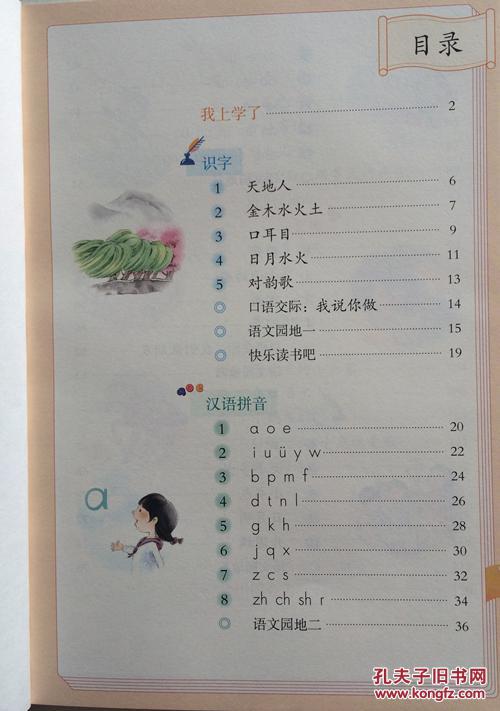 目录
我上学了 2
识字
1 天地人 6
2 金木水火土 7
3 口耳目 9
4 日月水火 11
5 对韵歌 13
◎ 口语交际：我说你做 14
◎ 语文园地一 15
◎ 快乐读书吧 19
汉语拼音
1 ɑ o e 20
2 i u ü y w 22
3 b p m f 24
4 d t n l 26
5 g k h 28
6 j q x 30
7 z c s 32
8 zh ch sh r 34
◎ 语文园地二 36
ɑ
孔夫子旧书网
www.kongfz.com